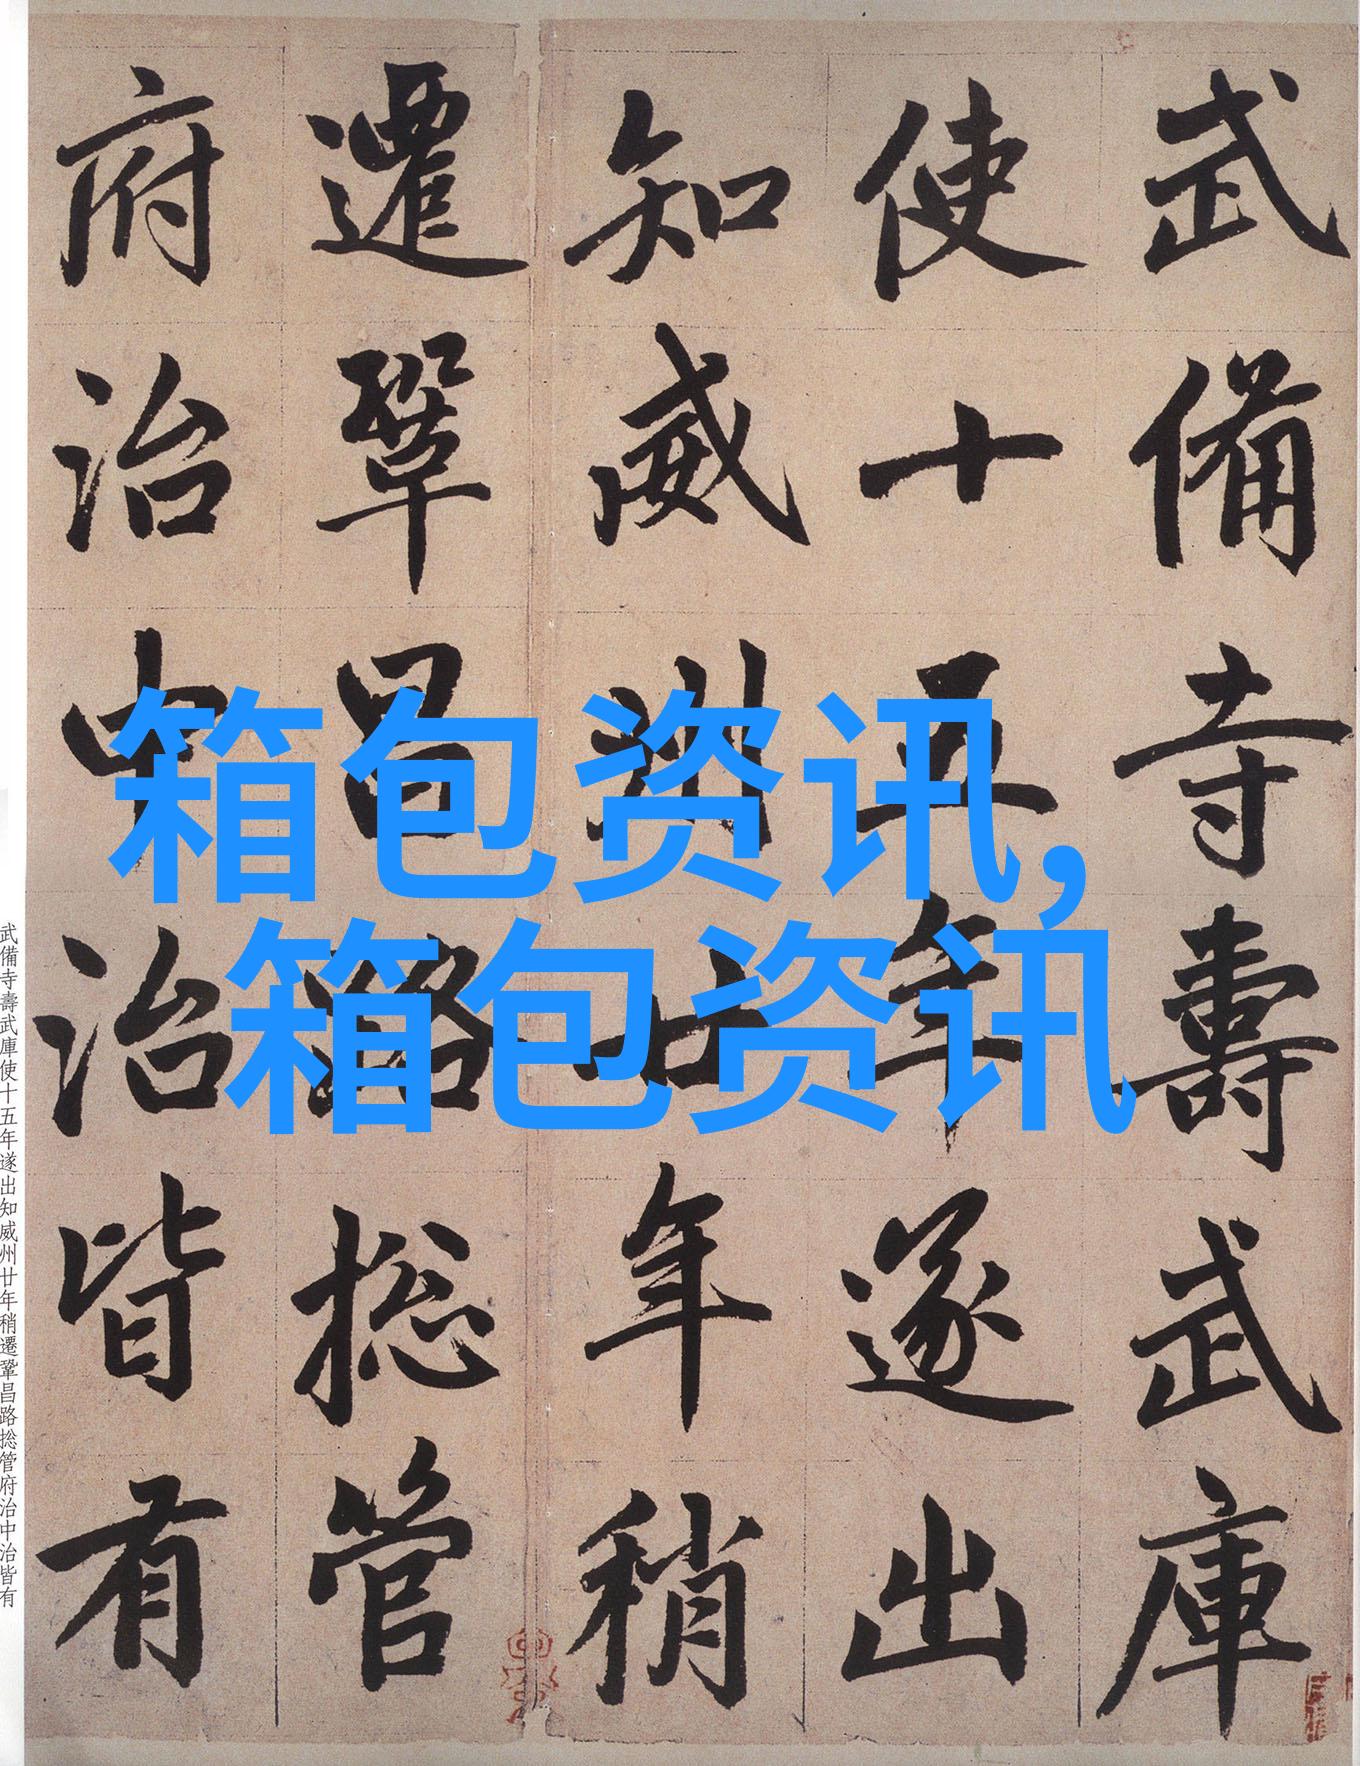 武備寺壽武庫
使十五年遂出
知威州廿年稍
遷鞏昌路揔管
府治中治皆有
箱包资讯,
箱包资讯
武備寺壽武庫使十五年遂出知威州廿年稍遷鞏昌路揔管府治中治皆有